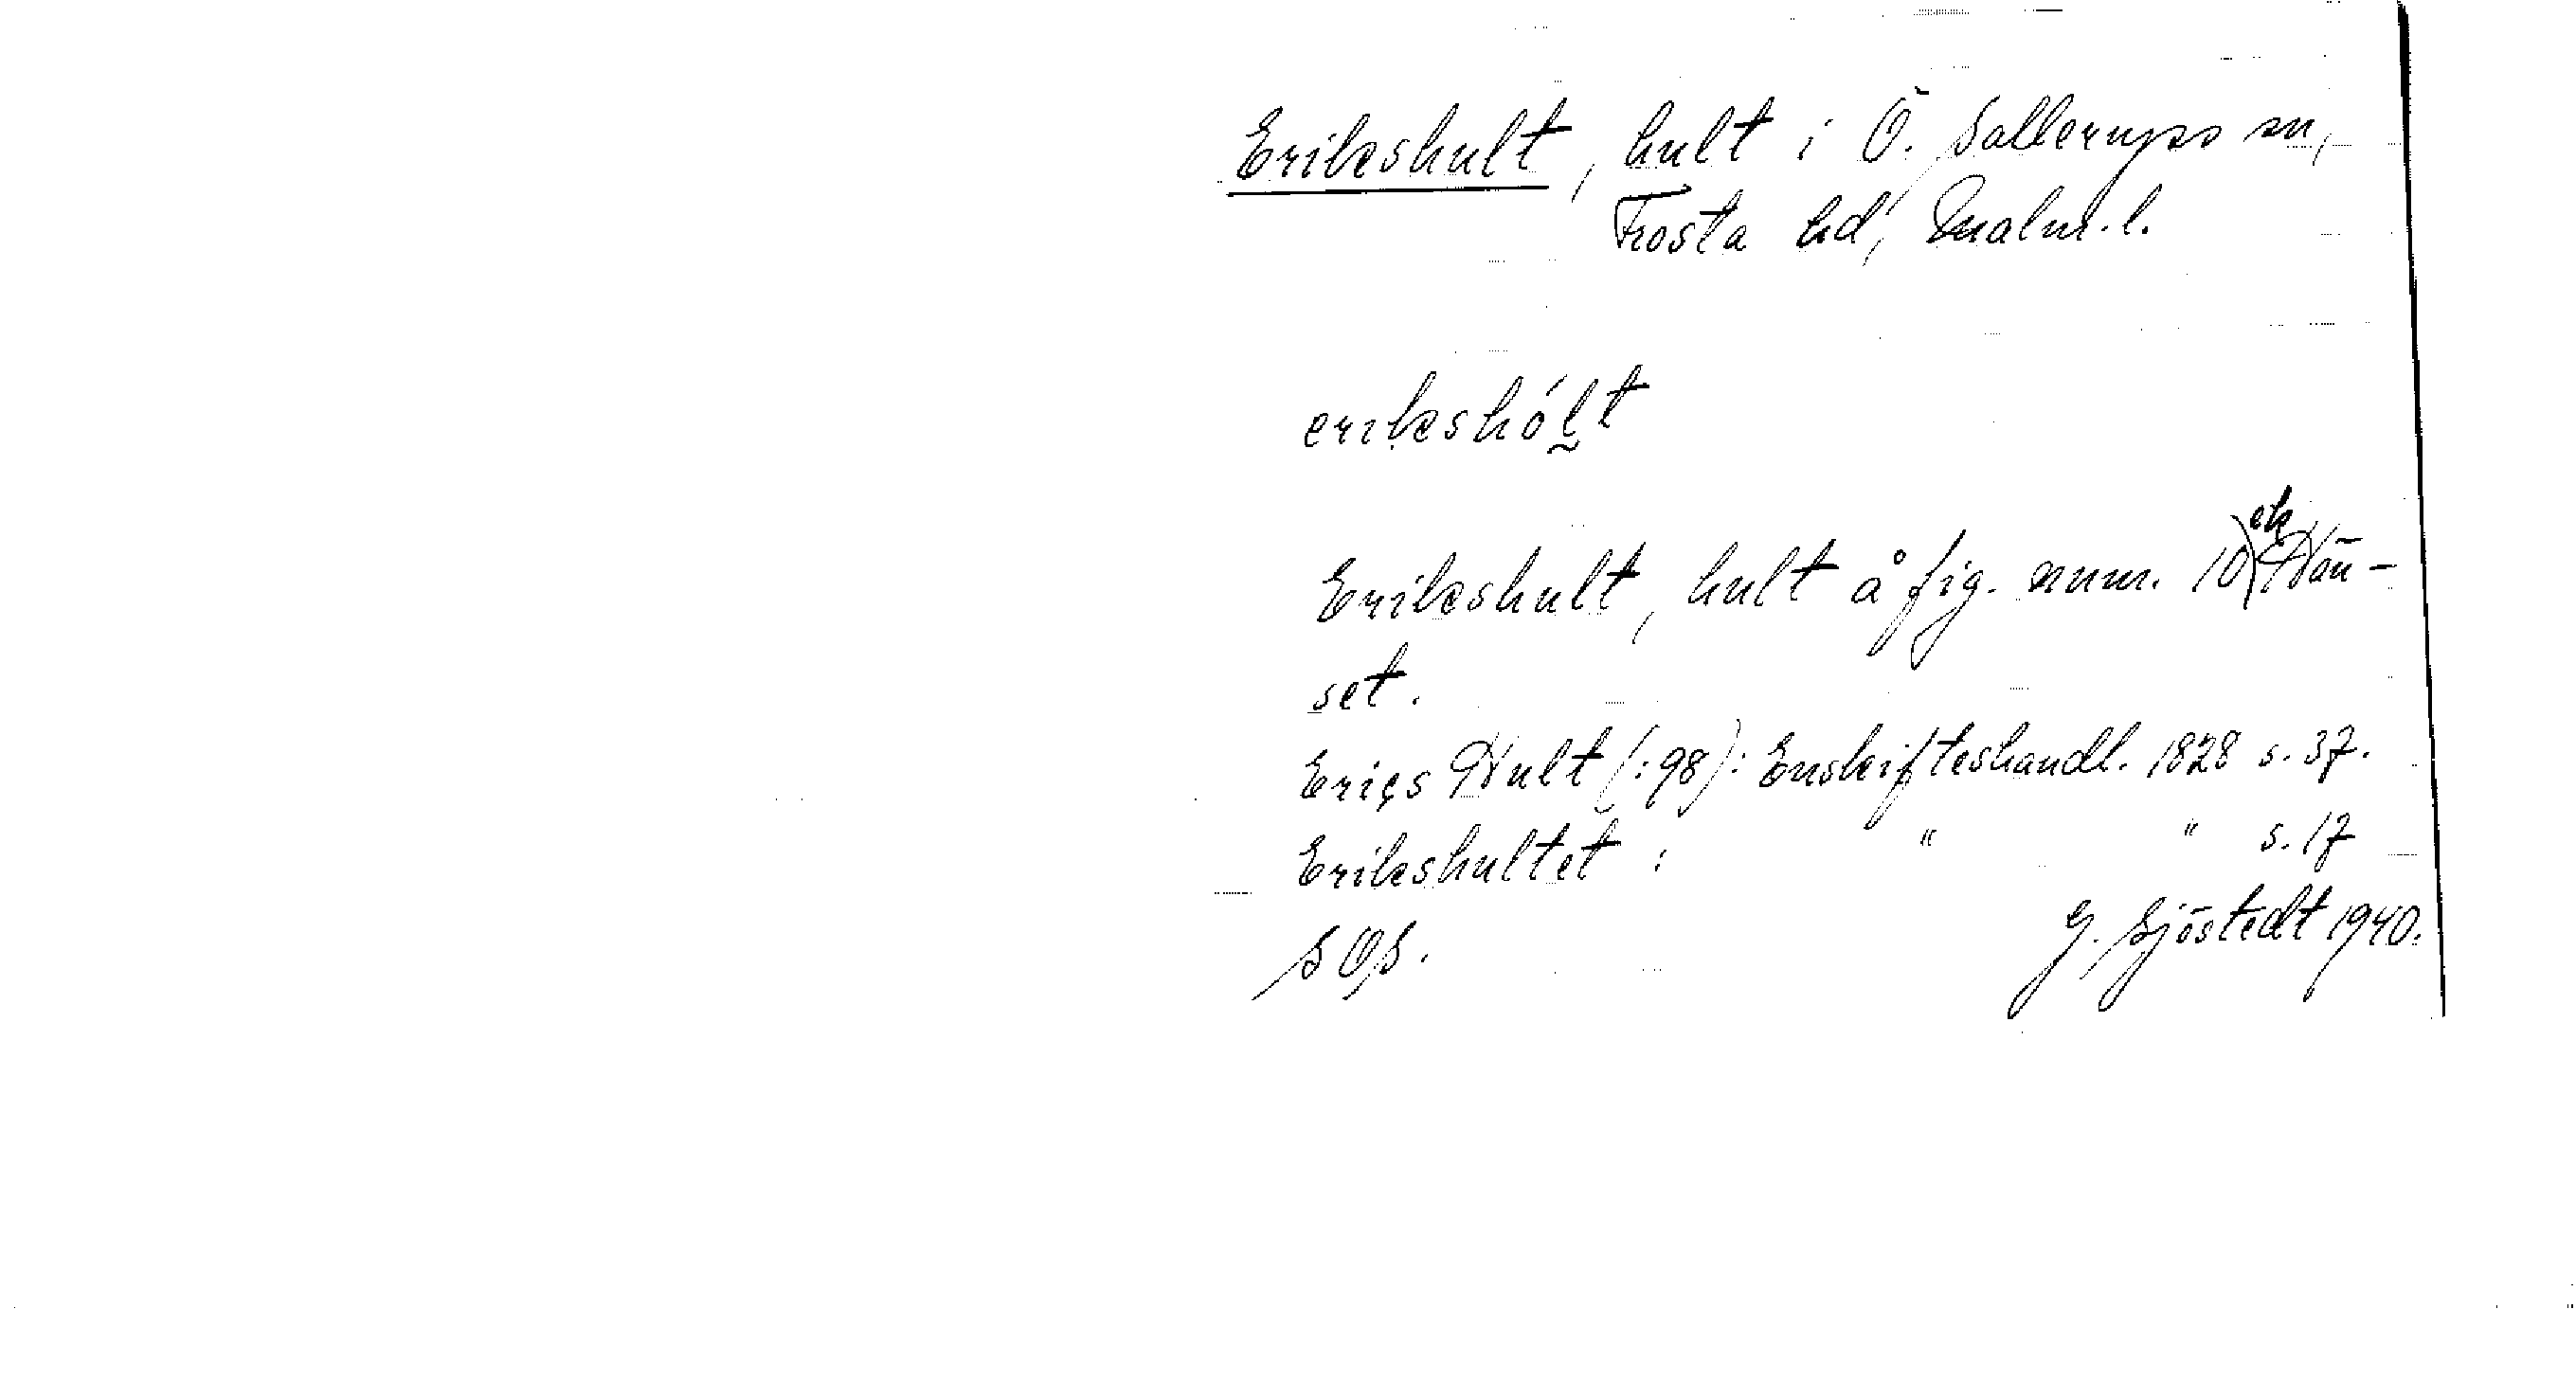 Erikshult, hult i Ö. Sallerups sn,
Frosta hd, Malm.l.
erikshólt
Erikshult, hult å fig. num. 10)
set.
Erics Hult (:98): Enskifteshandl. 1828 s. 37.
Erikshultet : " " s. 17
SOS. G. Sjöstedt 1940.